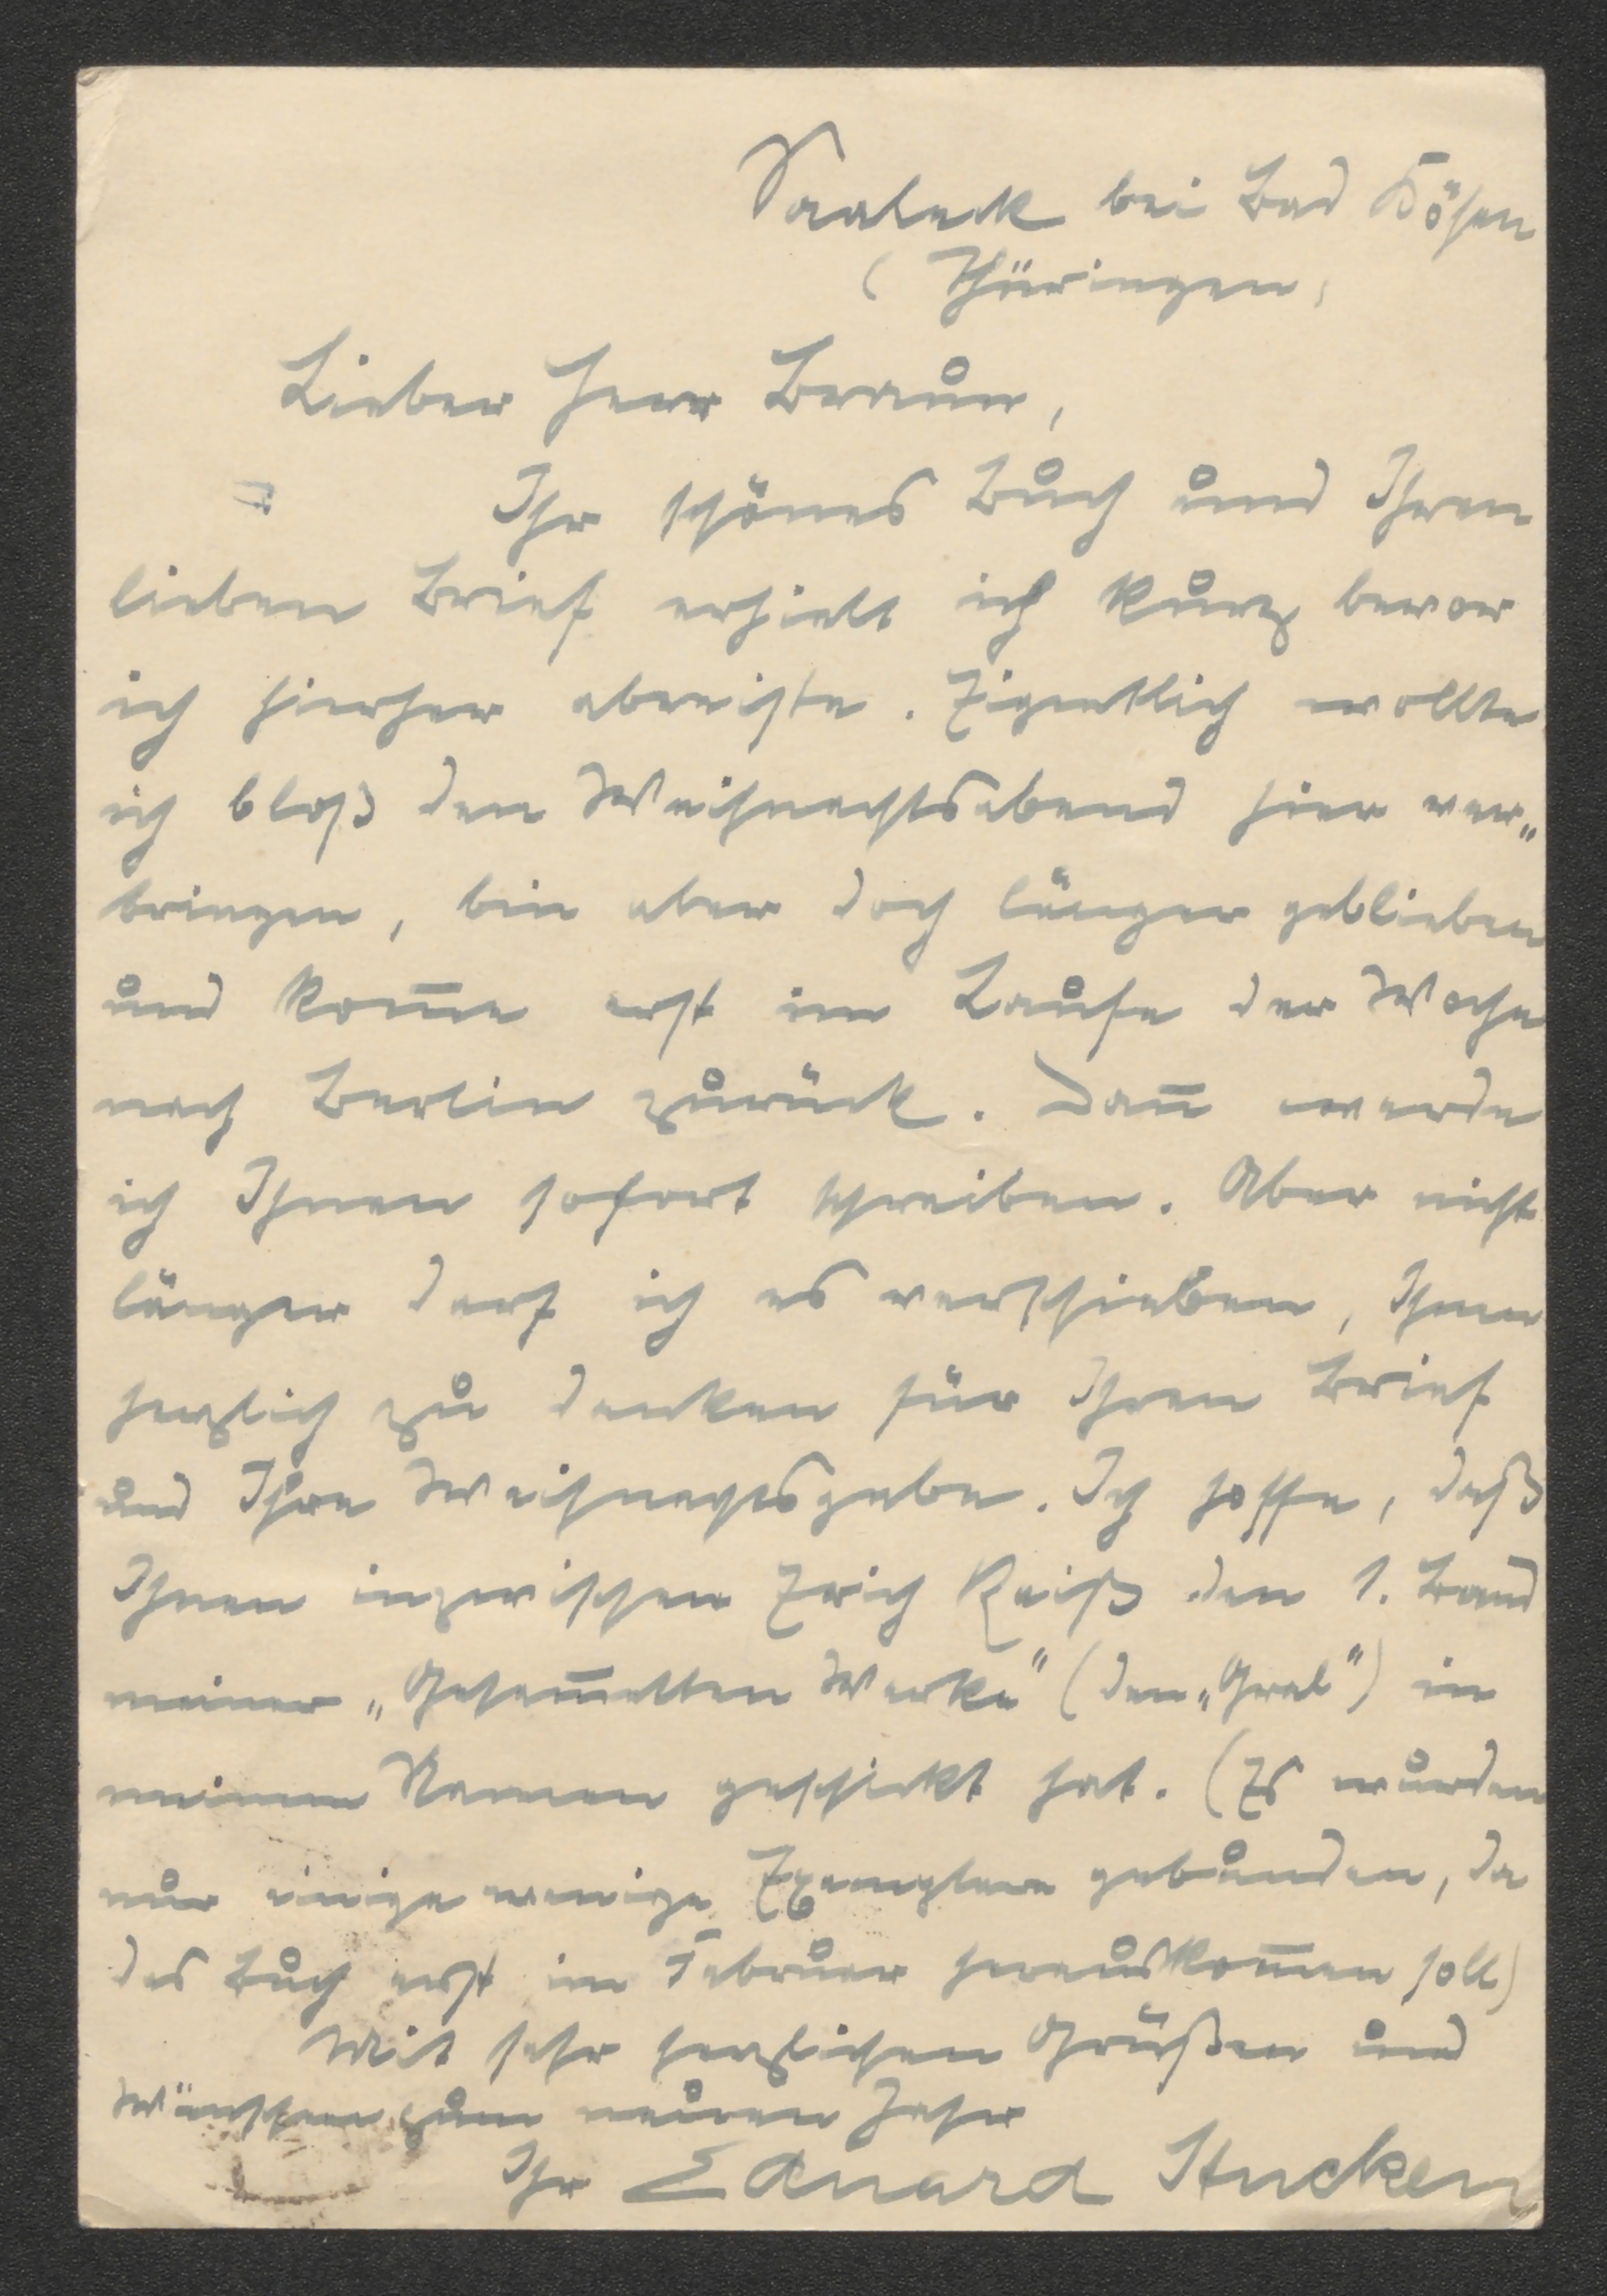 Saaleck bei Bad Kösen
(Thüringen)
Lieber Herr Braun,
Ihr schönes Buch und Ihren
lieben Brief erhielt ich kurz bevor
ich hierher abreiste. Eigentlich wollte
ich bloß den Weihnachtsabend hier ver„
bringen, bin aber doch länger geblieben
und kom̅e erst im Laufe der Woche
nach Berlin zurück. Dan̅ werde
ich Ihnen sofort schreiben. Aber nicht
länger darf ich es verschieben, Ihnen
herzlich zu danken für Ihren Brief
und Ihre Weihnachtsgabe. Ich hoffe, daß
Ihnen inzwischen Erich Reiß den 1. Band
meiner „Gesam̅elten Werke" (den „Gral") in
meinem Namen geschickt hat. (Es wurden
nur einige wenige Exemplare gebunden, da
das Buch erst im Februar herauskom̅en soll)
Mit sehr herzlichen Grüßen und
Wünschen zum neuen Jahr
Ihr Eduard Stucken